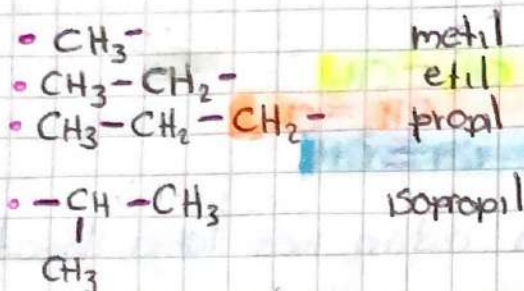 • CH3- metil
• CH3-CH2- etil
• CH3-CH2-CH2- propil
• -CH-CH3 isopropil
|
CH3